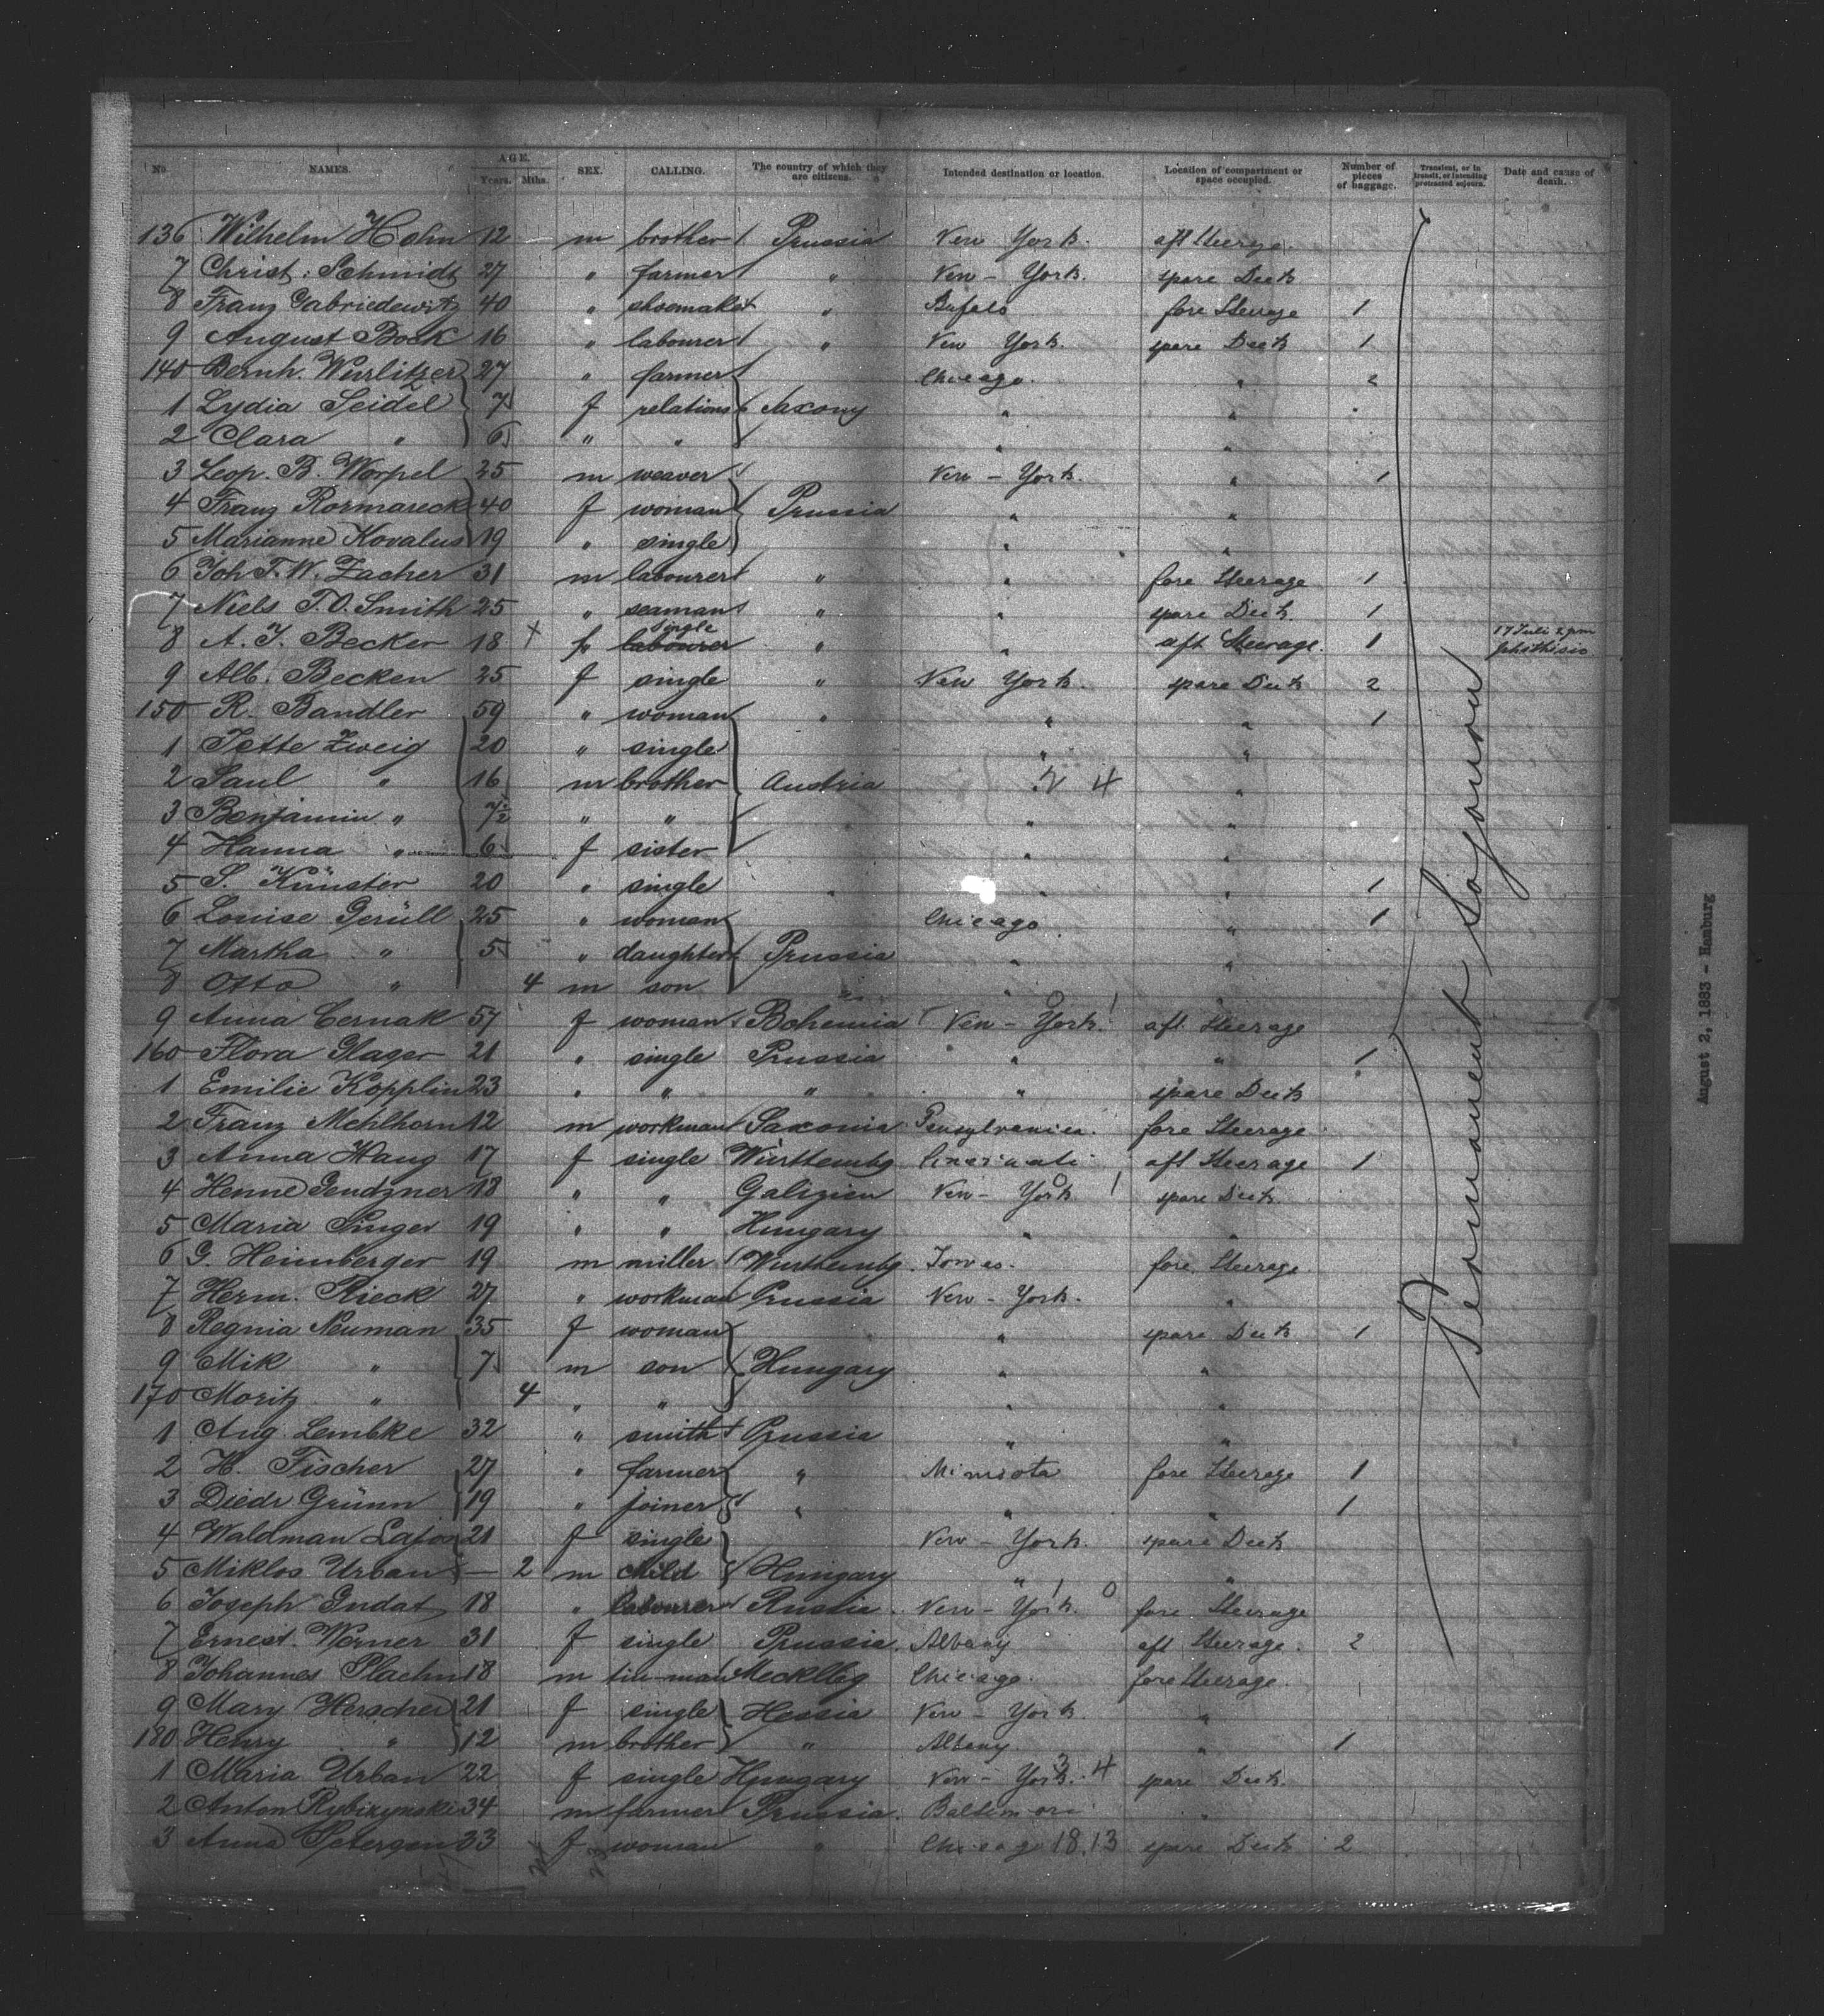 No. NAMES. AGE. Years. Mths. SEX. CALLING. The country of which they are citizens. Intended destination or location. Location of compartment or space occupied. Number of pieces of baggage. Transient, or in transit, or intending protracted sojourn. Date and cause of death.
136 Wilhelm Hohn 12 — m brother Prussia New York. aft Steerage.
7 Christ. Schmidt 27 " farmer " New - York. spare Deck
8 Franz Gabriedewitz 40 " shoemaker " Bufalo fore Steerage 1
9 August Bock 16 " labourer " New York. spare Deck 1
140 Bernh. Wurlitzer 27 " farmer Chicago. " 2
1 Lydia Seidel 7 f relations Saxony " "
2 Clara " 6 " " " "
3 Leop. B. Worpel 25 m weaver New - York. " 1
4 Franz Rormareck 40 f woman Prussia " "
5 Marianne Kovalus 19 " single " "
6 Joh. F. W. Zacher 31 m labourer " " fore Steerage 1
7 Niels T. O. Smith 25 " seaman " " spare Deck 1
8 A. J. Becker 18 + f labourer single " " aft Steerage. 1 17 Juli 2 pm phithisis
9 Alb. Becken 25 f single " New York. spare Deck 2
150 R. Bandler 59 " woman " " " 1
1 Jette Zweig 20 " single " "
2 Saul " 16 m brother Austria " 4 "
3 Benjamin " 7½ " " " "
4 Hanna " 6 f sister " "
5 S. Künster 20 " single " " " 1
6 Louise Gerüll 25 " woman Chicago " 1
7 Martha " 5 " daughter Prussia " "
8 Otto " 4 m son " "
9 Anna Cernak 57 f woman Bohemia New - York. 0 1 aft Steerage
160 Flora Glager 21 " single Prussia " " 1
1 Emilie Kopplin 23 " " " " spare Deck
2 Franz Mehlhorn 12 m workman Saxonia Pensylvanien. fore Steerage
3 Anna Haug 17 f single Würtembg Cincinati aft Steerage 1
4 Henne Gendzner 18 " " Galizien New - York. 0 1 spare Deck
5 Maria Singer 19 " " Hungary " "
6 G. Heimberger 19 m miller Wurtembg. Iowa. fore Steerage.
7 Herm. Rieck 27 " workman Prussia New - York. "
8 Regnia Neuman 35 f woman " spare Deck 1
9 Mik " 7 m son Hungary " "
170 Moritz " 4 " " " "
1 Aug. Lembke 32 " smith Prussia " "
2 H. Fischer 27 " farmer " Minisota fore Steerage 1
3 Diedr Grünn 19 " joiner " " " 1
4 Waldman Lajos 21 f single New - York. spare Deck
5 Miklos Urban — 2 m child Hungary " "
6 Joseph Gudat 18 " labourer Russia. New - York. 1 0 fore Steerage
7 Ernest. Werner 31 f single Prussia. Albany aft Steerage. 2
8 Johannes Plaehn 18 m tin-man Mecklbg Chicago. fore Steerage.
9 Mary Herscher 21 f single Hessia New - York. "
180 Henry " 12 m brother " Albany. " 1
1 Maria Urban 22 f single Hungary New - York. 3 4 spare Deck.
2 Anton Rybizynski 34 m farmer Prussia. Baltimore "
3 Anna Petersen 23 f woman " Chicago 18.13 spare Deck 2
Permanent Sojourn
August 2, 1883 - Hamburg